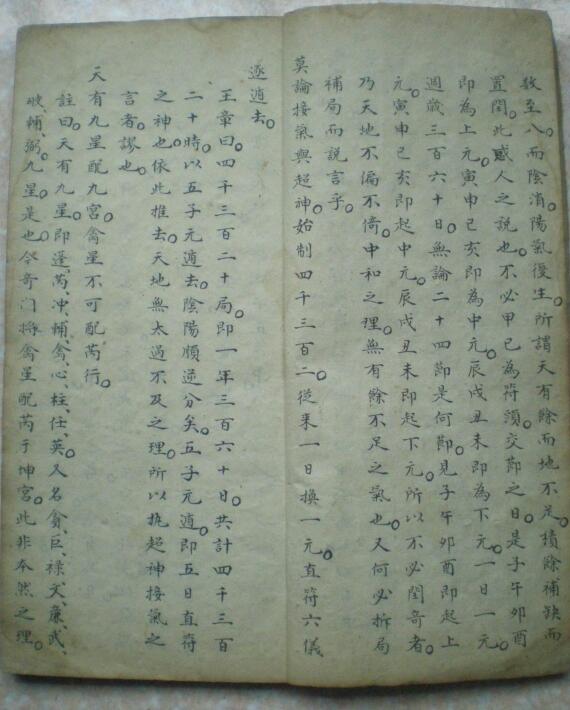 数至八。而陰消陽氣復生。所謂天有餘而地不足。積除補缺而
置閏。此惑人之說也。不必甲己為符頭。交節之日。是子午卯酉
即為上元。寅申己亥即為中元。辰戌丑未即為下元。一日一元。
週歲三百六十日。無論二十四節是何節。見子午卯酉即起上
元。寅申己亥即起中元。辰戌丑未即起下元。所以不必閏奇者。
乃天地不偏不倚。中和之理。無有餘不足之氣也。又何必拆局
補局而說言乎。
莫論接氣與超神。始制四千三百二。從来一日換一元。直符六儀
逐逍去。
王章曰。四千三百二十局。即一年三百六十日。共計四千三百
二十時。以五子元遁去。陰陽順逆分矣。五子元遁。即五日直符
之神也。依此推去。天地無太過不及之理。所以执超神接气之
言者。謬也。
天有九星配九宮。禽星不可配芮行。
註曰。天有九星。即蓬、芮、冲、輔、禽、心、柱、任、英。又名貪、巨、祿、文、廉、武、
破、輔、弼。九星是也。今奇门将禽星配芮于坤宮。此非本然之理。